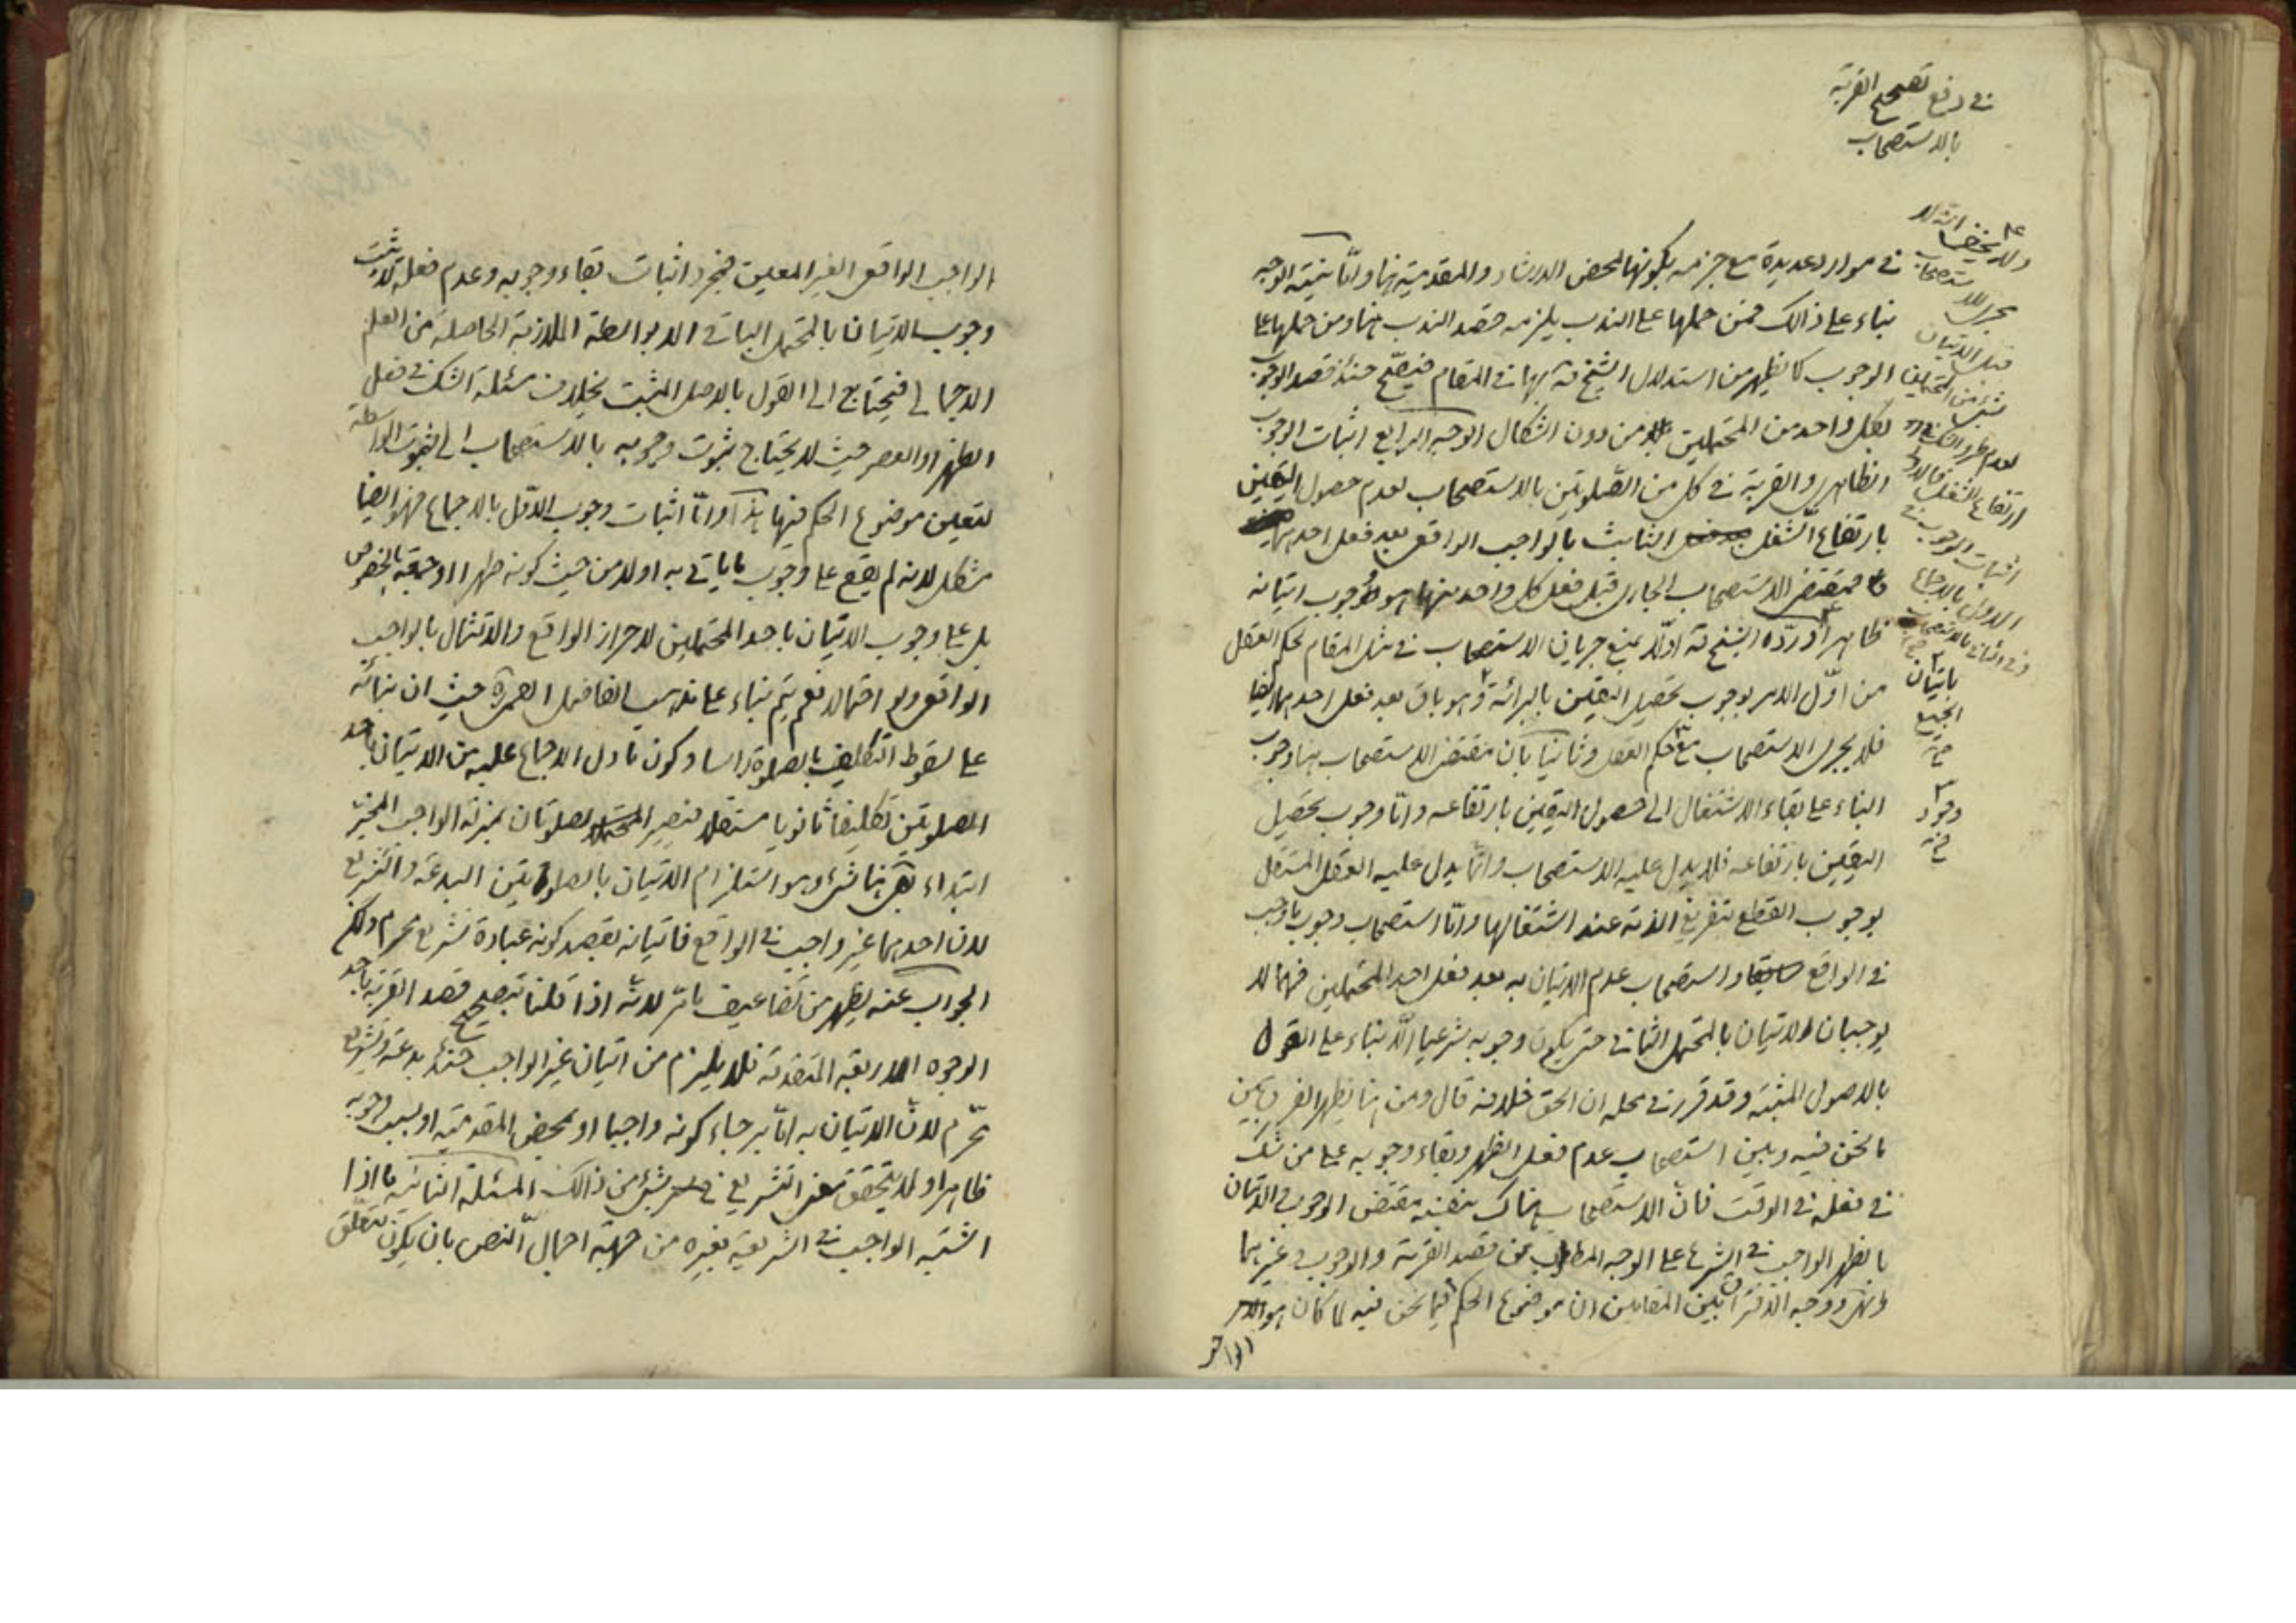 في دفع تصحيح القربة
بالاستصحاب
في موارد عديدة مع جزمه بكونها لمحض الارشاد والمقدمية فيها وامّا نيّة الوجه
بناء على ذالك فمن حملها على الندب يلزمه قصد الندب هنا ومن حملها على
الوجوب كما يظهر من استدلال الشيخ بها في المقام فيصحّ حينئذ قصد الوجوب
لكل واحد من المحتملين من دون اشكال الوجه الرابع اثبات الوجوب
الظاهري والقربة في كل من الصّلوتين بالاستصحاب لعدم حصول اليقين
بارتفاع الشغل الثابت بالواجب الواقعي بعد فعل احديهما
فمقتضى الاستصحاب الجاري قبل فعل كل واحد منهما هو وجوب اتيانه
ظاهرا وردّه الشيخ اوّلا بمنع جريان الاستصحاب في مثل المقام لحكم العقل
من اوّل الامر بوجوب تحصيل اليقين بالبرائة وهو باق بعد فعل احديهما ايضا
فلا يجري الاستصحاب مع حكم العقل وثانيا بان مقتضى الاستصحاب هنا وجوب
البناء على بقاء الاشتغال الى حصول اليقين بارتفاعه وامّا وجوب تحصيل
اليقين بارتفاعه فلا يدل عليه الاستصحاب وانّما يدل عليه العقل المستقل
بوجوب القطع بتفريغ الذمة عند اشتغالها وامّا استصحاب وجوب ما وجب
في الواقع سابقا واستصحاب عدم الاتيان به بعد فعل احد المحتملين فهما لا
يوجبان الاتيان بالمحتمل الثاني حتى يكون وجوبه شرعيا الّا بناء على القول
بالاصول المثبتة وقد قرر في محله ان الحق خلافه قال ومن هنا يظهر الفرق بين
ما نحن فيه وبين استصحاب عدم فعل الظهر وبقاء وجوبه على من شك
في فعله في الوقت فانّ الاستصحاب هناك بنفسه مقتضى الوجوب الاتيان
بالظهر الواجب في الشرع على الوجه المطلوب من قصد القربة والوجوب وغيرهما
انتهى ووجه الافتراق بين المقامين ان موضوع الحكم فيما نحن فيه لما كان هو الامر
ولا يخفى انّه لا
يجري الاستصحاب
قبل الاتيان
بشئ من المحتملين
ارتفاع الشغل
اثبات الوجوب في
الاول بالاجماع
وفي الثاني بالاستصحاب
باتيان
الجميع
الواجب الواقعي الغير المعين فمجرد اثبات بقاء وجوبه وعدم فعله لا يثبت
وجوب الاتيان بالمحتمل الباقي الا بواسطة الملازمة الحاصلة من العلم
الاجمالي فيحتاج الى القول بالاصل المثبت بخلاف مسئلة الشك في فعل
الظهر او العصر حيث لا يحتاج ثبوت وجوبه بالاستصحاب الى ثبوت الواسطة
لتعين موضوع الحكم فيها هذا وامّا اثبات وجوب الاوّل بالاجماع فهو ايضا
مشكل لانه لم يقع على وجوب ما ياتي به اولا من حيث كونه ظهرا او جمعة بالخصوص
بل على وجوب الاتيان باحد المحتملين لاحراز الواقع والامتثال بالواجب
الواقعي ولو احتمالا نعم يتم بناء على مذهب الفاضل القمي حيث ان بنائه
على سقوط التكليف بالصلوة راسا وكون ما دل الاجماع عليه من الاتيان باحد
الصلوتين تكليفا ثانويا مستقلا فيصير الصلوتان بمنزلة الواجب المخير
ابتداء بقي هنا شئ وهو استلزام الاتيان بالصلوتين البدعة والتشريع
لان احديهما غير واجب في الواقع فاتيانه بقصد كونه عبادة تشريع محرم ولكن
الجواب عنه يظهر من تضاعيف ما مرّ لانّه اذا قلنا بتصحيح قصد القربة باحد
الوجوه الاربعة المتقدمة فلا يلزم من اتيان غير الواجب حينئذ بدعة وتشريع
محرّم لانّ الاتيان به امّا برجاء كونه واجبا او لمحض المقدمية او بسبب وجوبه
ظاهرا ولا يتحقق معنى التشريع في شئ من ذالك المسئلة الثانية ما اذا
اشتبه الواجب في الشريعة بغيره من جهة اجمال النص بان يكون متعلق